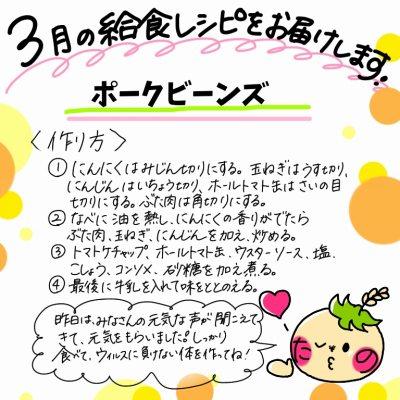 3月の給食レシピをお届けします!
ポークビーンズ
〈作り方〉
① にんにくはみじん切りにする。玉ねぎはうす切り、
にんじんはいちょう切り、ホールトマト缶はさいの目
切りにする。ぶた肉は角切りにする。
② なべに油を熱し、にんにくの香りがでたら
ぶた肉、玉ねぎ、にんじんを加え、炒める。
③ トマトケチャップ、ホールトマト缶、ウスターソース、塩、
こしょう、コンソメ、砂糖を加え煮る。
④ 最後に牛乳を入れて味をととのえる。
昨日は、みなさんの元気な声が聞こえて
きて、元気をもらいました!しっかり
食べて、ウィルスに負けない体を作ってね!
たの